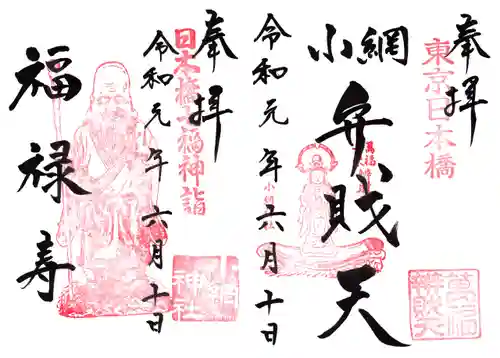 奉拝
東京日本橋
小網
弁財天
萬福
小網神社
萬福
弁財天
令和元年六月十日
奉拝
日本橋七福神詣
令和元年六月十日
小網
神社
福禄寿